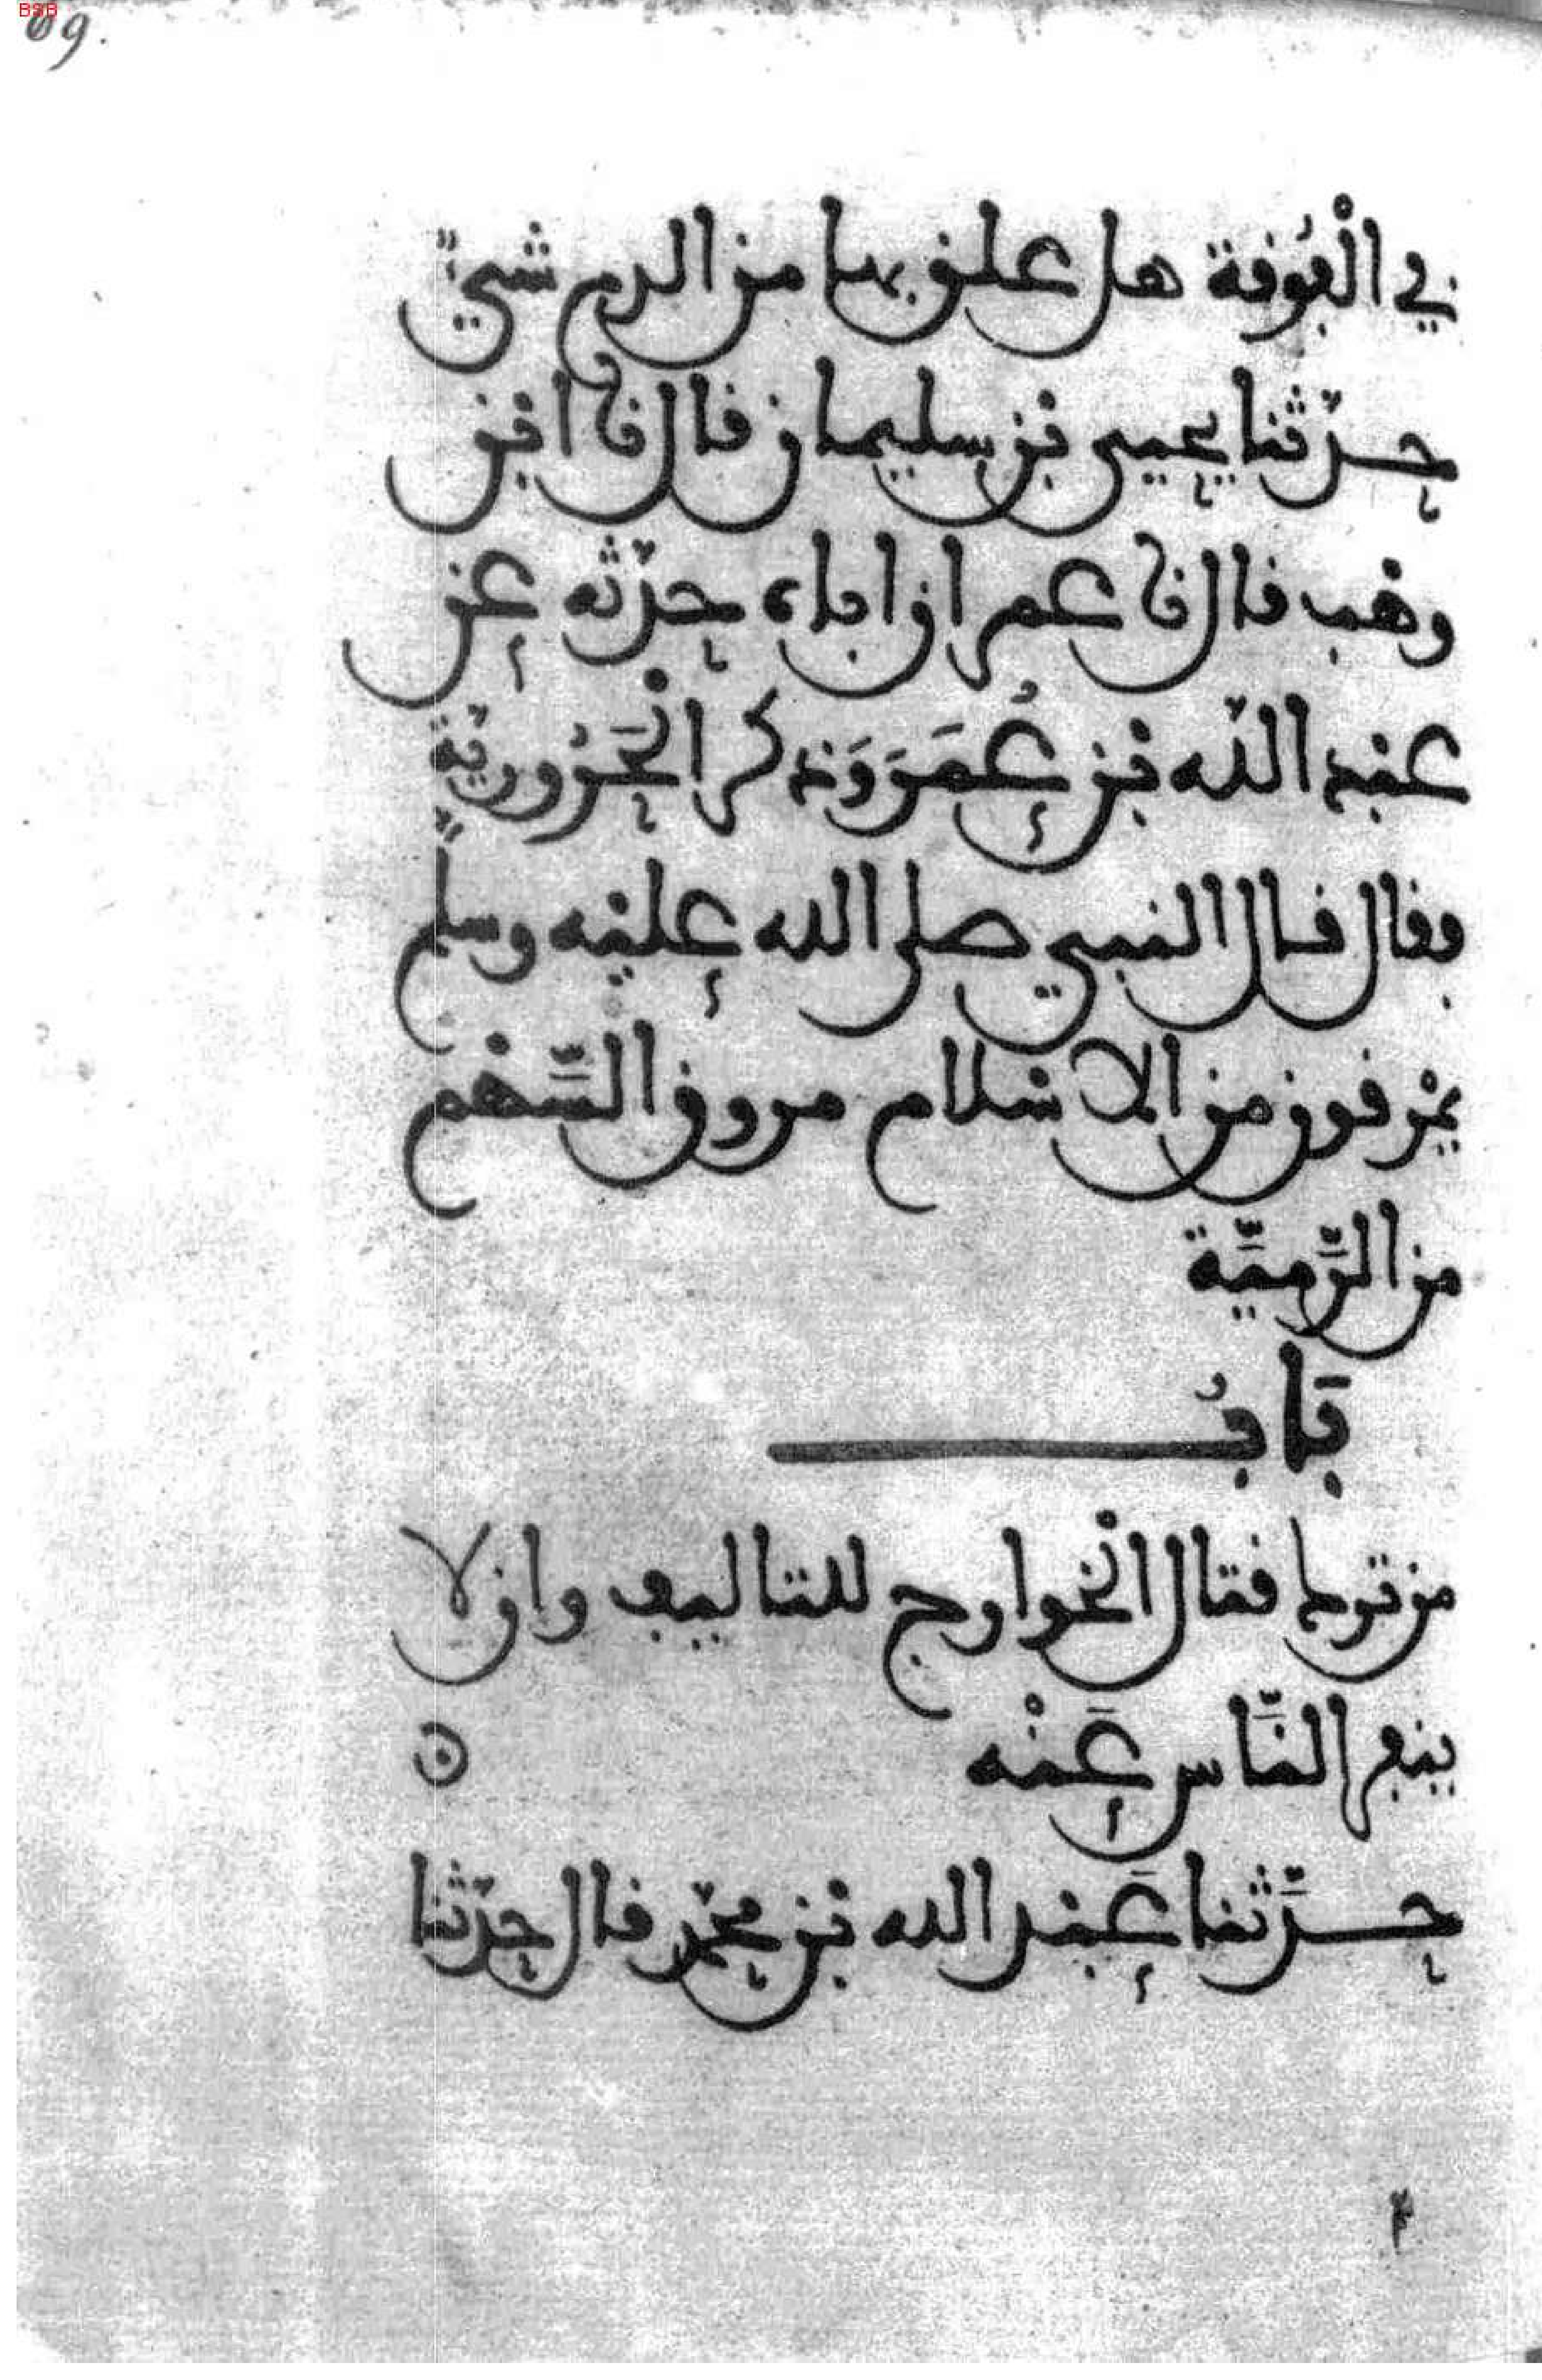 BSB
69.
في الْفُوقة هل علق بها من الدم شيءٌ
حدّثنا يحيى بن سليمان قال نا ابن
وهب قال نا عمر ان اباه حدّثه عن
عبد اللّه بن عُمَرَ وَذكر الْحَرُوريّة
فقال قال النبي صلى الله عليه وسلم
يمْرقون من الاسْلام مروق السَّهْم
من الرَّميَّة
بَابُ
من ترك قتال الْخوارج للتاليف وان لا
ينفر النَّاس عَنْه
حدَّثنا عَبْد الله بن محمّد قال حدّثنا